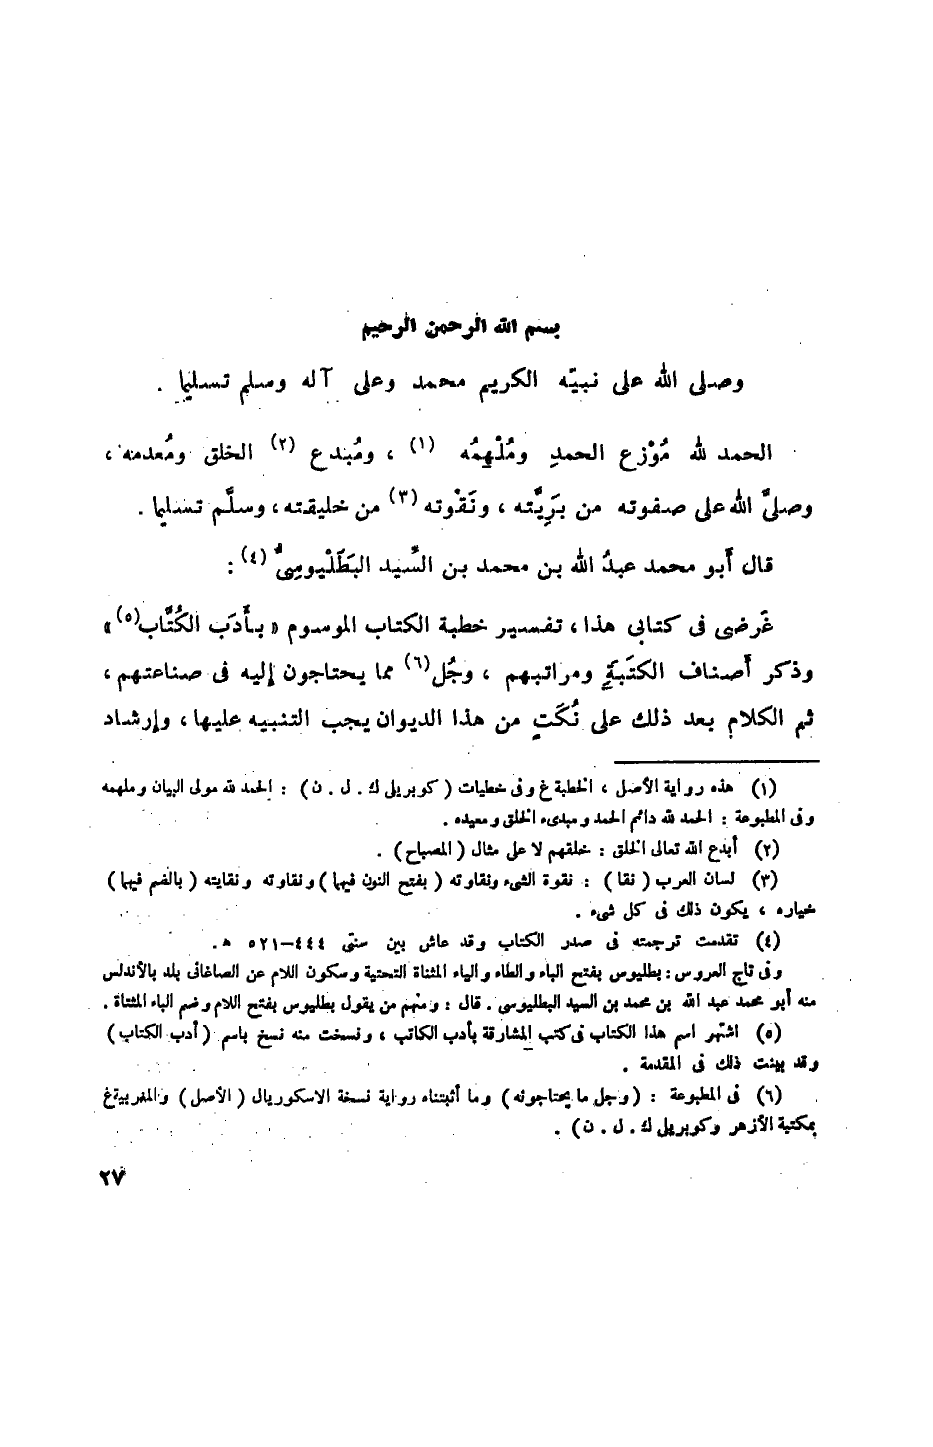 بسم الله الرحمن الرحيم
وصلى الله على نبيّه الكريم محمد وعلى آله وسلم تسليما .
الحمد لله مُوْزع الحمدِ ومُلْهِمُه (١) ، ومُبدع (٢) الخلق ومُعدمه ،
وصلىَّ الله على صفوته من بَرِيَّته ، ونَقْوته (٣) من خليقته ، وسلَّم تسليما .
قال أَبو محمد عبدُ الله بن محمد بن السِّيد البَطَلْيوسىُّ (٤) :
غَرضى فى كتابى هذا ، تفسير خطبة الكتاب الموسوم « بأَدَب الكُتَّاب(٥) »
وذكر أَصناف الكتَبَةِ ومراتبهم ، وجُل(٦) مما يحتاجون إليه فى صناعتهم ،
ثم الكلام بعد ذلك على نُكَتٍ من هذا الديوان يجب التنبيه عليها ، وإرشاد
(١) هذه رواية الأصل ، الخطبة غ وفى خطيات ( كوبريلى ك . ل . ن ) : الحمد لله مولى البيان وملهمه
وفى المطبوعة : الحمد لله دائم الحمد ومبدىء الخلق ومعيده .
(٢) أبدع الله تعالى الخلق : خلقهم لا على مثال ( المصباح ) .
(٣) لسان العرب ( نقا ) : نقوة الشىء ونقاوته ( بفتح النون فيها ) ونقاوته ونقايته ( بالضم فيها )
خياره ، يكون ذلك فى كل شىء .
(٤) تقدمت ترجمته فى صدر الكتاب وقد عاش بين سنتى ٤٤٤–٥٢١ ه .
وفى تاج العروس : بطليوس بفتح الباء والطاء والياء المثناة التحتية وسكون اللام عن الصاغانى بلد بالأندلس
منه أبو محمد عبد الله بن محمد بن السيد البطليوسى . قال : ومنهم من يقول بطليوس بفتح اللام وضم الياء المثناة .
(٥) اشتهر اسم هذا الكتاب فى كتب المشارقة بأدب الكاتب ، ونسخت منه نسخ باسم ( أدب الكتاب )
وقد بينت ذلك فى المقدمة .
(٦) فى المطبوعة : ( وجل ما يحتاجونه ) وما أثبتناه رواية نسخة الاسكوريال ( الأصل ) والمغربية غ
بمكتبة الأزهر وكوبريلى ك . ل . ن ) .
٢٧